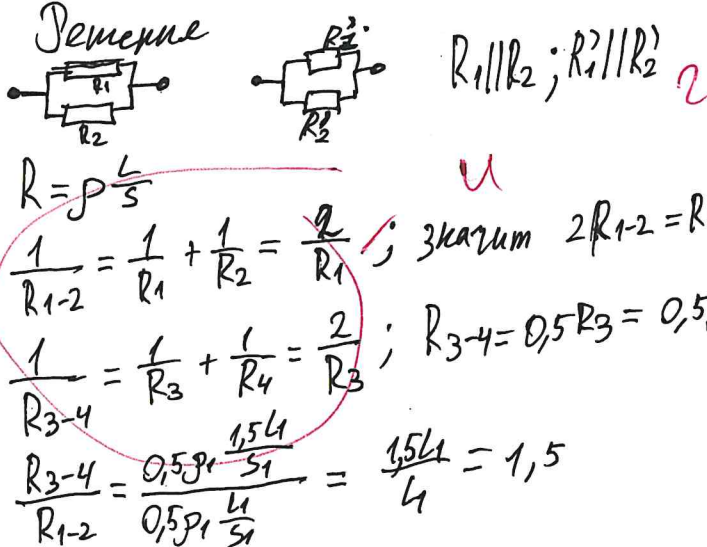 Решения
R1 R2 R1' R2' R1||R2 ; R1'||R2'
R = ρ L/S
1/R1-2 = 1/R1 + 1/R2 = 2/R1 ; значит 2R1-2 = R
1/R3-4 = 1/R3 + 1/R4 = 2/R3 ; R3-4 = 0,5R3 = 0,5
R3-4/R1-2 = 0,5ρ1 1,5L1/S1 / 0,5ρ1 L1/S1 = 1,5L1/L1 = 1,5